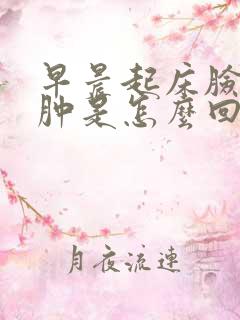 早晨起床臉
肿是怎麼回
月夜流連